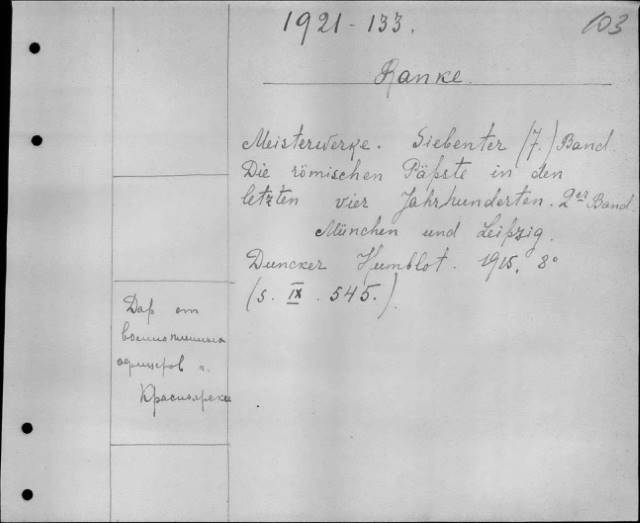 1921-133.
103
Ranke.
Meisterwerke. Siebenter (7.) Band.
Die römischen Päpste in den
letzten vier Jahrhunderten. 2er Band
München und Leipzig.
Duncker Humblot. 1915. 8°
(S. IX. 545.)
Дар от
военнопленных
офицеров г.
Красноярска